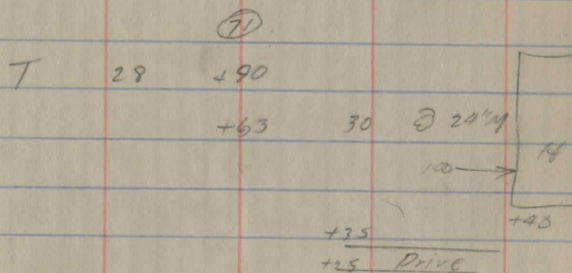 71
T 28 +90
+63 30 @ 24"M
100
H
+40
+35
+25 Drive